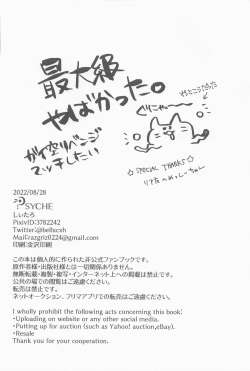 最大級
やばかった。
ガイ空リベンジ
マッチしたい
☆SPECIAL THANKS☆
2022/08/28
PSYCHE
しいたろ
PixivID:3782242
MaiFrazgriz0224@gmail.com
印刷:金沢印刷
この本は個人的に作られた非公式ファンブックです。
原作者様・出版社様とは一切関係ありません。
無断転載・複製・複写・インターネット上への掲載は禁止です。
公共の場での閲覧はご遠慮ください。
転売は禁止です。
ネットオークション、フリマアプリでの転売はご遠慮ください。
I wholly prohibit the following acts concerning this book:
・Uploading on website or any other social media.
・Putting up for auction (such as Yahoo! auction,eBay).
・Resale
Thank you for your cooperation.